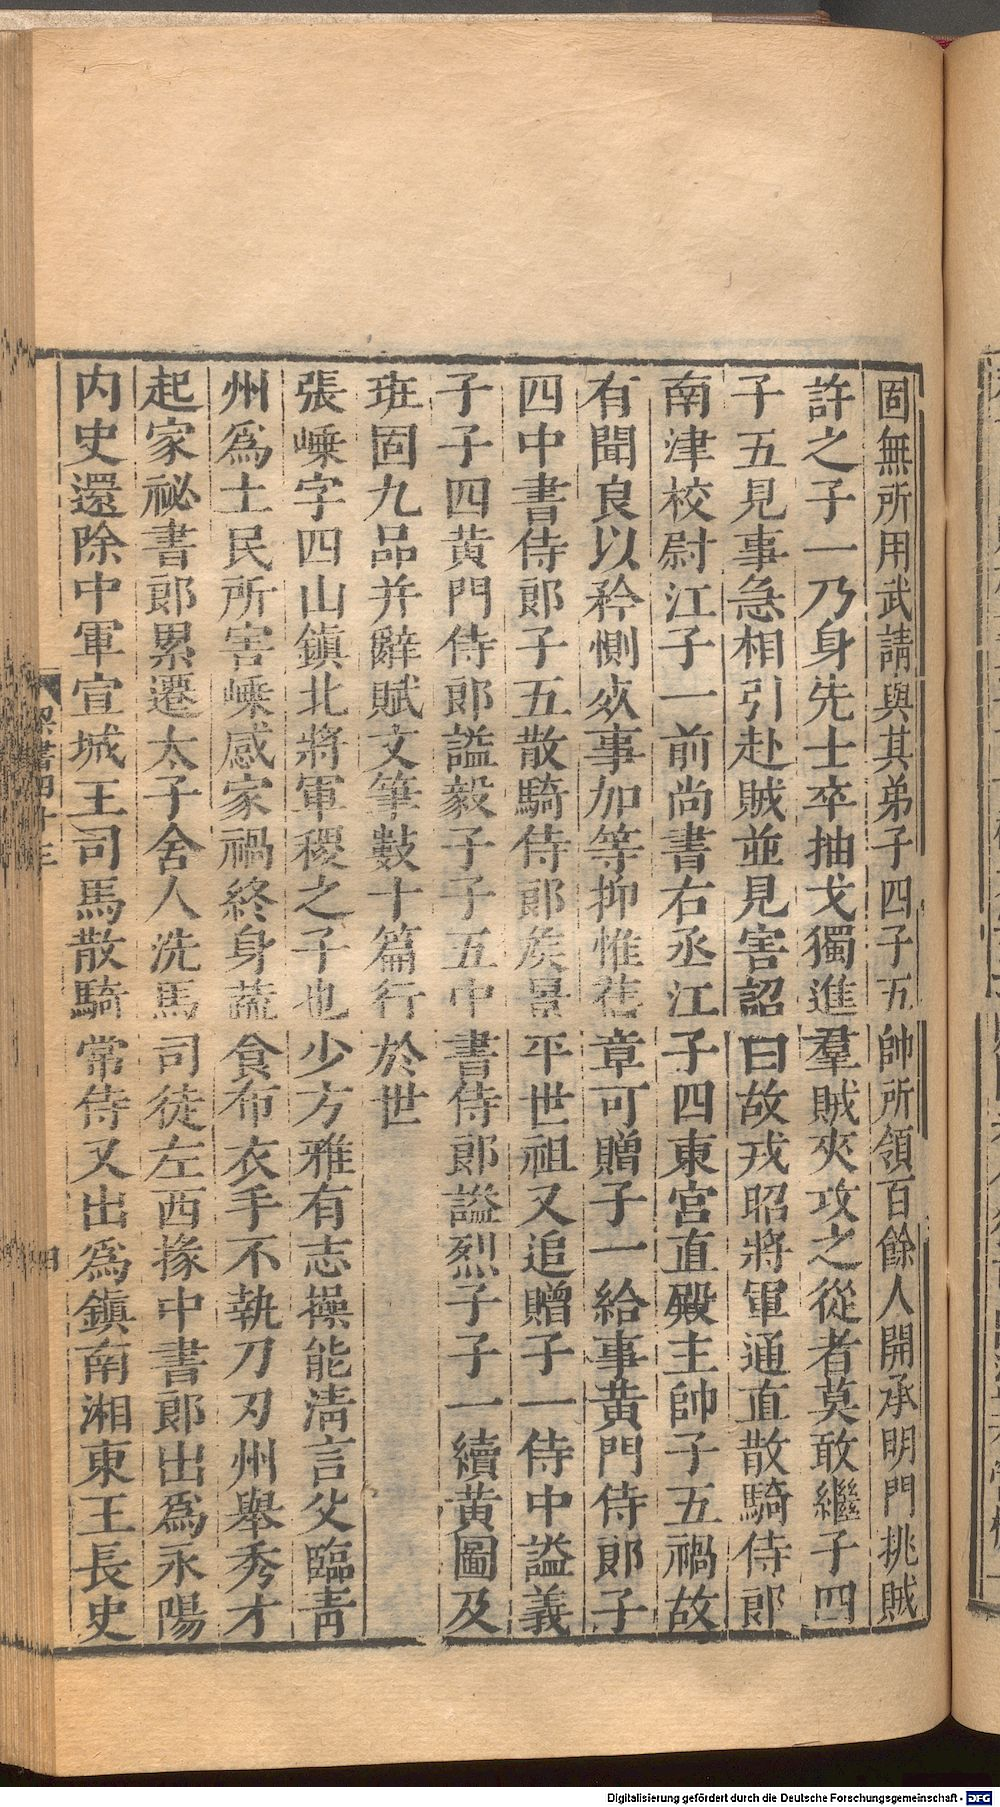 固無所用武請與其弟子四子五帥所領百餘人開承明門挑賊
許之子一乃身先士卒抽戈獨進羣賊夾攻之從者莫敢繼子四
子五見事急相引赴賊並見害詔曰故戎昭將軍通直散騎侍郎
南津校尉江子一前尚書右丞江子四東宮直殿主帥子五禍故
有聞良以矜惻夾事加等抑惟舊章可贈子一給事黃門侍郎子
四中書侍郎子五散騎侍郎矦景平世祖又追贈子一侍中謚義
子子四黃門侍郎謚毅子子五中書侍郎謚烈子子一續黃圖及
班固九品并辭賦文筆數十篇行於世
張嵊字四山鎮北將軍稷之子也少方雅有志操能清言父臨青
州爲土民所害嵊感家禍終身蔬食布衣手不執刀刃州舉秀才
起家祕書郎累遷太子舍人洗馬司徒左西掾中書郎出爲永陽
内史還除中軍宣城王司馬散騎常侍又出爲鎮南湘東王長史
梁書四十三
四
Digitalisierung gefördert durch die Deutsche Forschungsgemeinschaft - DFG